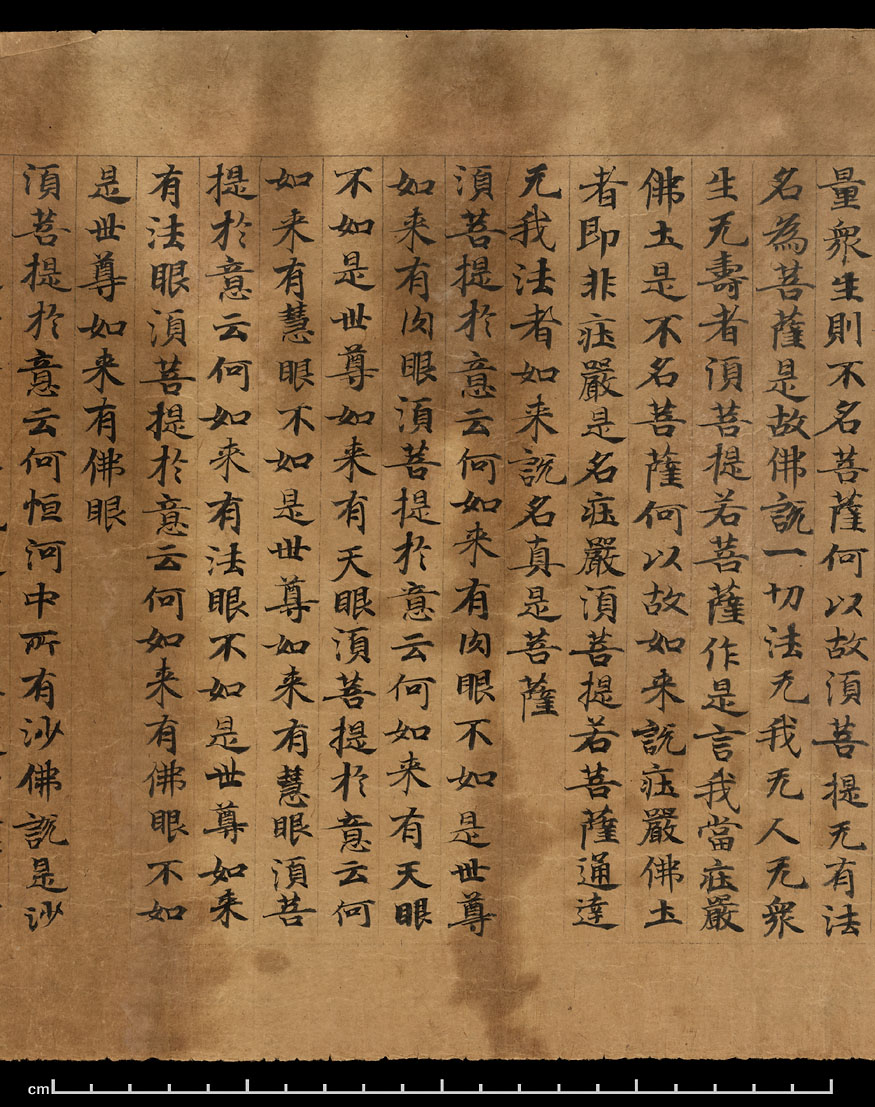 量衆生則不名菩薩何以故湏菩提无有法
名為菩薩是故佛說一切法无我无人无衆
生无壽者湏菩提若菩薩作是言我當庄嚴
佛土是不名菩薩何以故如来說庄嚴佛土
者即非庄嚴是名庄嚴湏菩提若菩薩通達
无我法者如来說名真是菩薩
湏菩提於意云何如来有肉眼不如是世尊
如来有肉眼湏菩提於意云何如来有天眼
不如是世尊如来有天眼湏菩提於意云何
如来有慧眼不如是世尊如来有慧眼湏菩
提於意云何如来有法眼不如是世尊如来
有法眼湏菩提於意云何如来有佛眼不如
是世尊如来有佛眼
湏菩提於意云何恒河中所有沙佛說是沙
cm